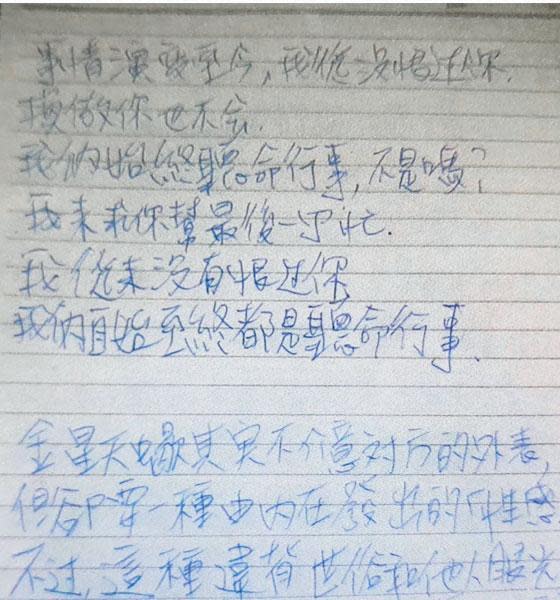 事情演變至今，我從沒恨过你.
換做你也不会.
我们始終聽命行事，不是嗎？
我来求你幫最後一次忙.
我從来没有恨过你
我们自始至終都是聽命行事.
金星天蠍其实不介意対方的外表，
但卻要一種由内在發出的性感
不过，這種違背世俗和他人眼光